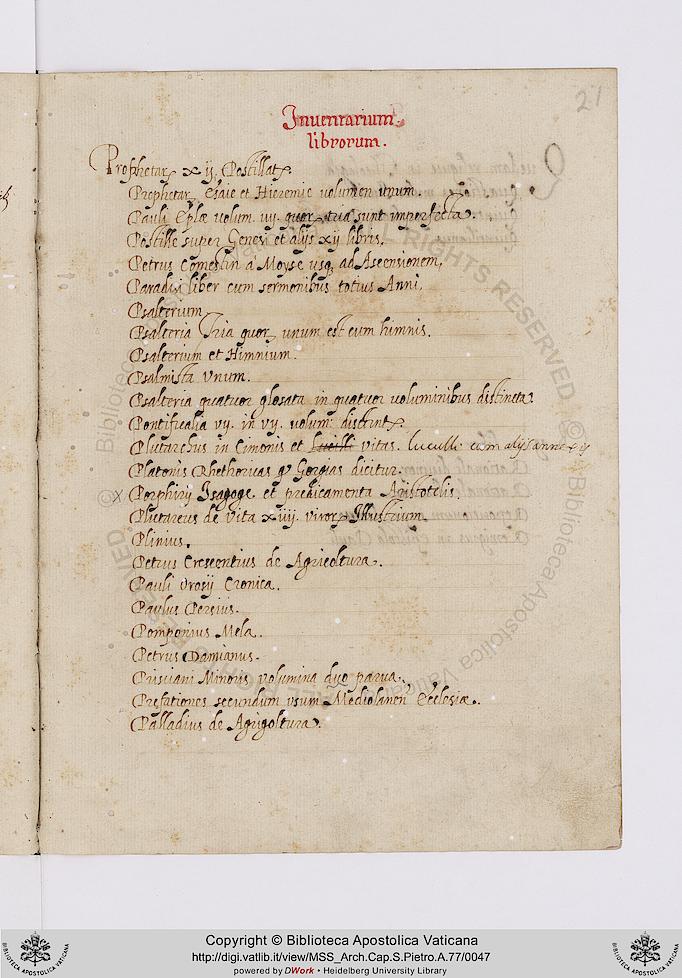 21
Inventarium
librorum.
Prophetarꝝ xij. Postillatꝝ.
Prophetarꝝ Esaie et Hieremie volumen unum.
Pauli Eplæ volum. iiij. quorꝝ tria sunt imperfecta.
Postille super Genesi et alijs xij libris.
Petrus Comestin a Moyse usq₃ ad Ascensionem,
Paradisi liber cum sermonibus totius Anni,
Psalterium
Psalteria Tria quorꝝ unum est cum himnis.
Psalterium et Himnium.
Psalmista Vnum.
Psalteria quatuor glosata in quatuor voluminibus distincta.
Pontificalia vij. in vij. volum: distinctꝝ.
Plutarchus in Cimonis et Lucilli vitas. luculli cum alijs annexis
Platonis Rhethoricas q Gorgias dicitur.
x Porphirij Isagoge et predicamenta Aristotelis.
Plutarcus de Vita xiiij. virorꝝ Illustrium.
Plinius.
Petrus Crescentius de Agricoltura.
Pauli Orosij Cronica.
Paulus Persius.
Pomponius Mela.
Petrus Damianus.
Prisciani Minoris volumina duo parva.
Prefationes secundum usum Mediolanen Ecclesiæ.
Palladius de Agrigoltura.
Copyright © Biblioteca Apostolica Vaticana
http://digi.vatlib.it/view/MSS_Arch.Cap.S.Pietro.A.77/0047
powered by DWork • Heidelberg University Library
BIBLIOTECA APOSTOLICA VATICANA
BIBLIOTECA APOSTOLICA VATICANA